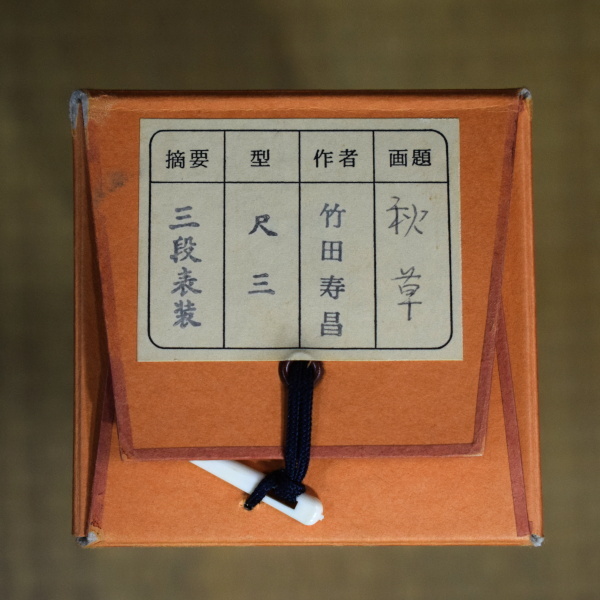 画題
秋草
作者
竹田寿昌
型
尺三
摘要
三段表装